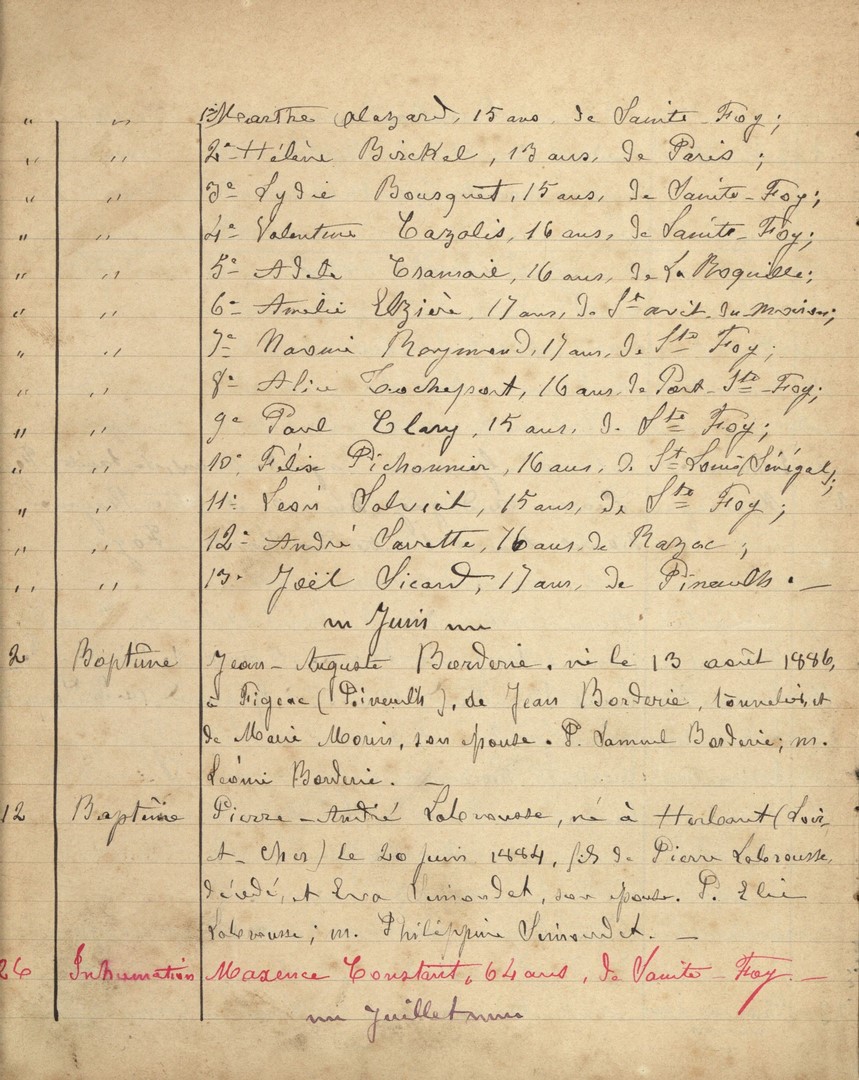 " " 1º Marthe Mazard, 15 ans, de Sainte-Foy;
" " 2º Hélène Birckel, 13 ans, de Paris;
" " 3e Lydie Bousquet, 15 ans, de Sainte-Foy;
" " 4e Valentine Cazalis, 16 ans, de Sainte-Foy;
" " 5e 16 ans, de La Roquille;
" " 6e Amélie Elzière, 17 ans, de St avit du moiron;
" " 7e Naomi Raymond, 17 ans, de Ste Foy;
" " 8e Alice Rochefort, 16 ans, de Port-Ste-Foy;
" " 9e Paul Clary, 15 ans, de Ste Foy;
" " 10e Félix Pichonnier, 16 ans, de St Louis (Sénégal);
" " 11e Léon Salviat, 15 ans, de Ste Foy;
" " 12e André Sarrette, 16 ans, de Razac;
" " 13e Joël Sicard, 17 ans, de Pineuilh. —
Juin
2 Baptême Jean-Auguste Borderie, né le 13 août 1886,
à Figeac (Pineuilh), de Jean Borderie, tonnelier, et
de Marie Mouris, son épouse. P. Samuel Borderie; m.
Léonie Borderie. —
12 Baptême Pierre-André Labrousse, né à Herbault (Loir-
et-Cher) le 20 juin 1884, fils de Pierre Labrousse,
décédé, et Eva Simondet, son épouse. P. Elie
Labrousse; m. Philippine Simondet. —
26 Inhumation Maxence Constant, 64 ans, de Sainte-Foy. —
Juillet